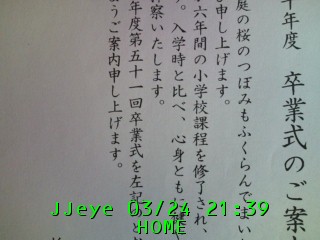 年度 卒業式のご案
庭の桜のつぼみもふくらんでまい
申し上げます。
六年間の小学校課程を修了され、
す。入学時と比べ、心身ともに
察いたします。
年度第五十一回卒業式を左記の
うご案内申し上げます。
JJeye 03/24 21:39
HOME